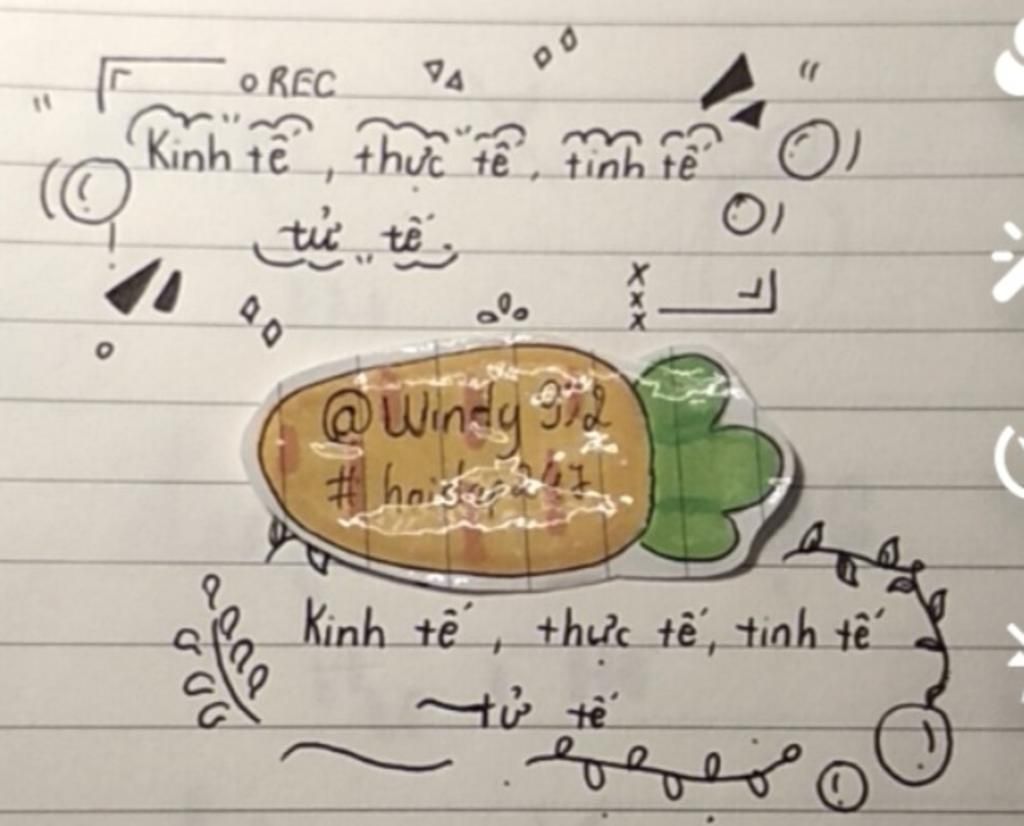 REC
Kinh tế, thực tế, tinh tế
tử tế.
@Windy 9.2
#
Kinh tế, thực tế, tinh tế
tử tế